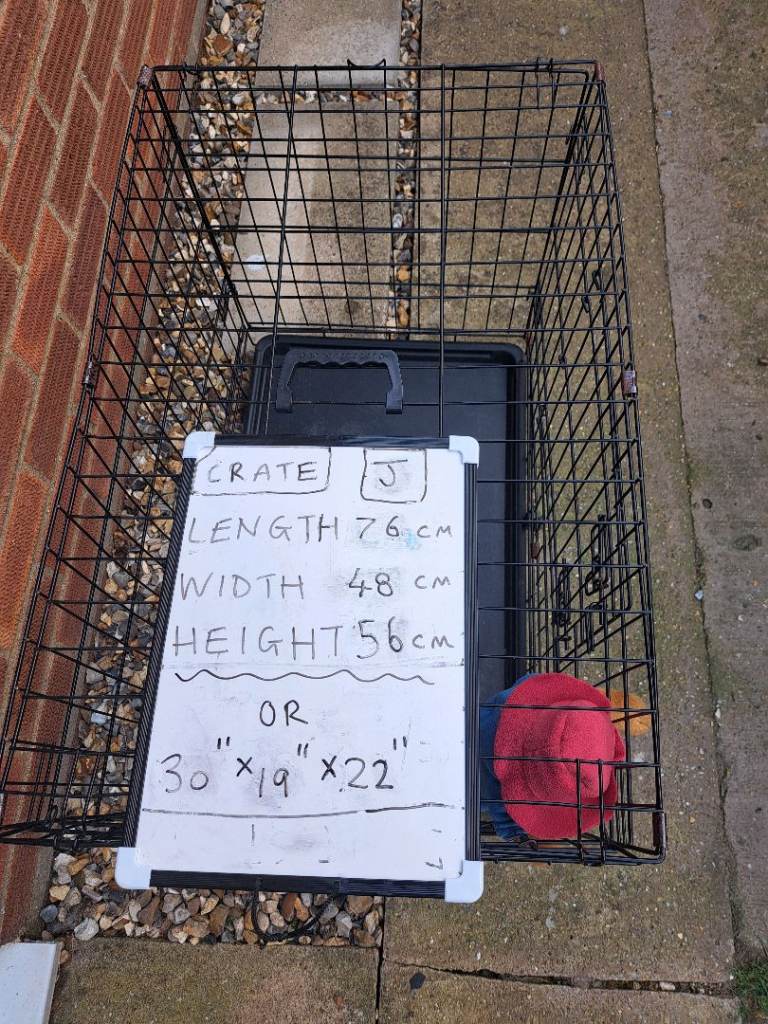 CRATE J
LENGTH 76 CM
WIDTH 48 CM
HEIGHT 56 CM
OR
30" x 19" x 22"